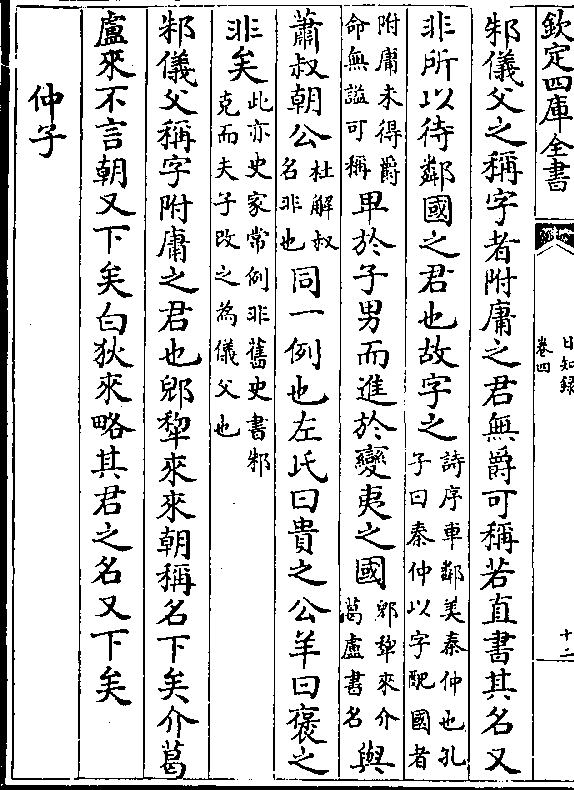 欽定四庫全書
日知錄
卷四
十二
邾儀父之稱字者附庸之君無爵可稱若直書其名又
非所以待鄰國之君也故字之詩序車鄰美秦仲也孔子曰秦仲以字配國者
附庸未得爵命無謚可稱卑於子男而進於蠻夷之國郳犂來介葛盧書名與
蕭叔朝公杜解叔名非也同一例也左氏曰貴之公羊曰褒之
非矣此亦史家常例非舊史書邾克而夫子改之為儀父也
邾儀父稱字附庸之君也郳犂來來朝稱名下矣介葛
盧來不言朝又下矣白狄來略其君之名又下矣
仲子